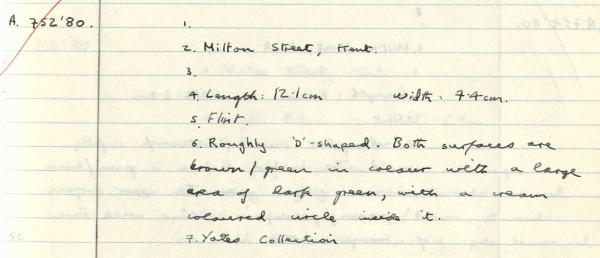 A. 752'80. 1.
2. Milton Street, Kent.
3.
4. Length: 12.1cm Width: 7.4cm.
5. Flint.
6. Roughly 'D'-shaped. Both surfaces are
brown/green in colour with a large
area of dark green, with a cream
coloured circle inside it.
7. Yates Collection